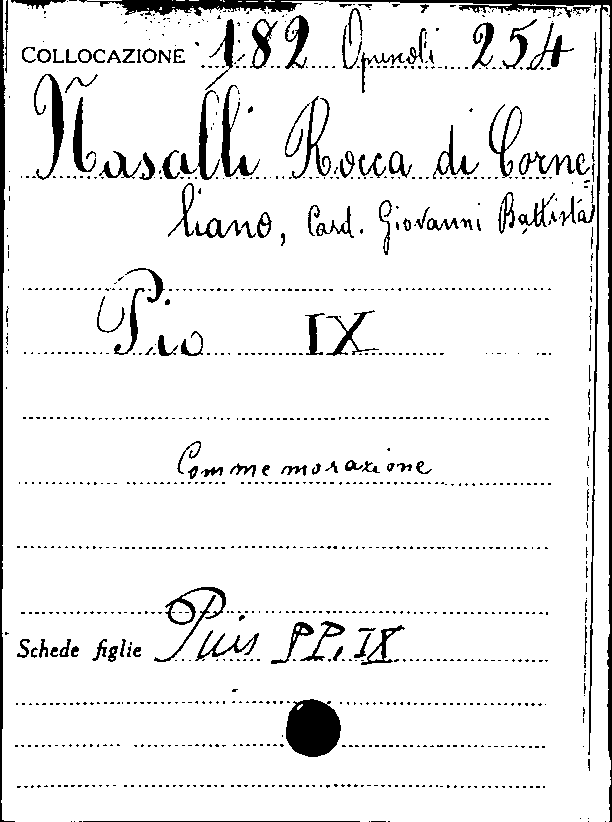 COLLOCAZIONE 182 Opuscoli 254
Nasalli Rocca di Corne=
liano, Card. Giovanni Battista
Pio IX
Commemorazione
Schede figlie Pius PP. IX